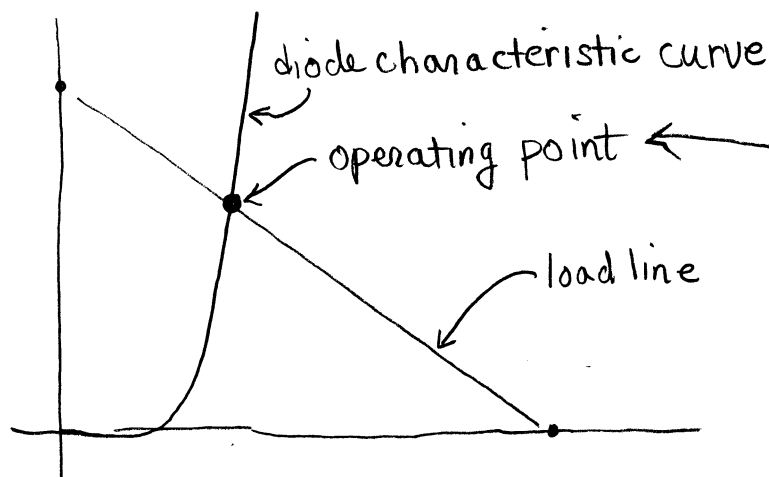 diode characteristic curve
operating point
load line